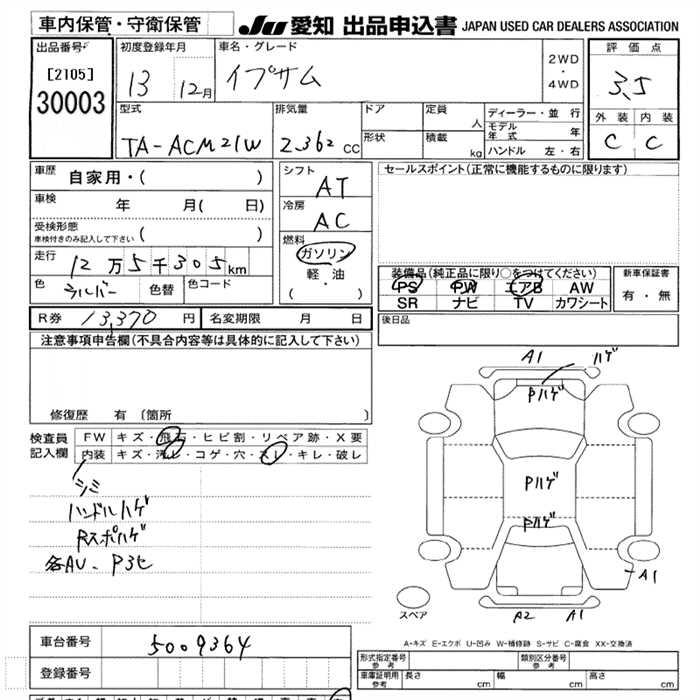 車内保管・守衛保管
JU 愛知 出品申込書 JAPAN USED CAR DEALERS ASSOCIATION
出品番号 初度登録年月 車名・グレード 評価点
[2105]
30003
13 12月 イプサム
2WD
・
4WD
3.5
外装 内装
C C
型式 排気量 ドア 定員 人 ディーラー・並行
モデル年式 年
TA-ACM21W 2,362 CC 形状 積載 kg ハンドル 左・右
車歴 自家用・( )
車検 年 月( 日)
受検形態
車検付きのみ記入して下さい ( )
走行 12万5千305km
色 シルバー 色替 色コード
シフト AT
冷房 AC
燃料
ガソリン
軽・油
( ・ )
セールスポイント(正常に機能するものに限ります)
装備品(純正品に限り○をつけてください)
PS PW エアB AW
SR ナビ TV カワシート
新車保証書
有・無
R券 13,370 円 名変期限 月 日
後日品
注意事項申告欄(不具合内容等は具体的に記入して下さい)
修復歴 有 (箇所 )
検査員記入欄
FW キズ・飛石・ヒビ割・リペア跡・X要
内装 キズ・汚レ・コゲ・穴・スレ・キレ・破レ
シミ
ハンドルハゲ
Rスポハゲ
各AU、P3セ
A1 ハゲ
Pハゲ
Pハゲ
Pハゲ
A1
A2 A1
スペア
A-キズ E-エクボ U-凹み W-補修跡 S-サビ C-腐食 XX-交換済
車台番号 5009364
登録番号
形式指定番号 参考 類別区分番号 参考
車庫証明用 参考 長さ cm 幅 cm 高さ cm